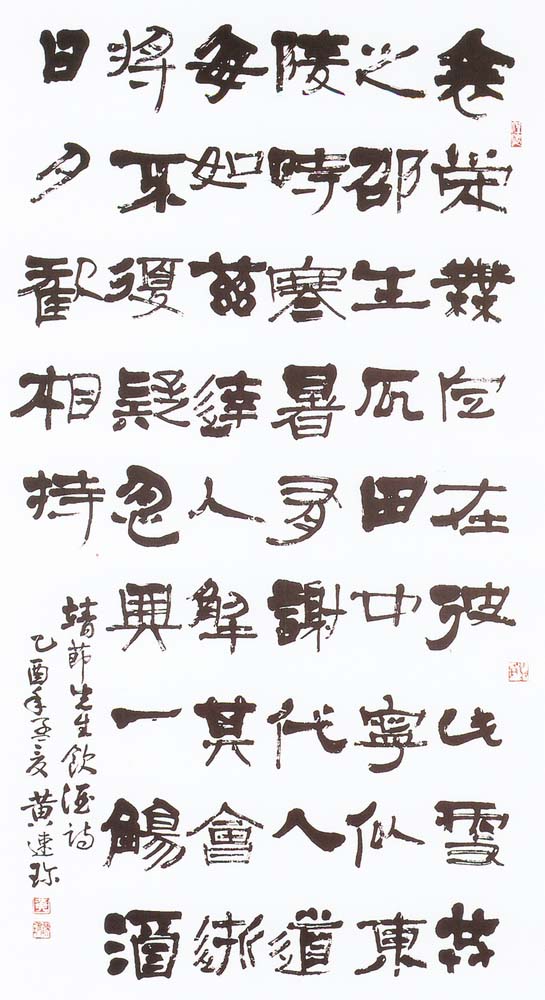 衰榮無定在彼此雪共
之邵生瓜田中寧似東
陵時寒暑有謝代人道
每如茲達人解其會逝
將不復疑忽與一觴酒
日夕歡相持
靖節先生飲酒詩
乙酉年孟夏 黃連珍